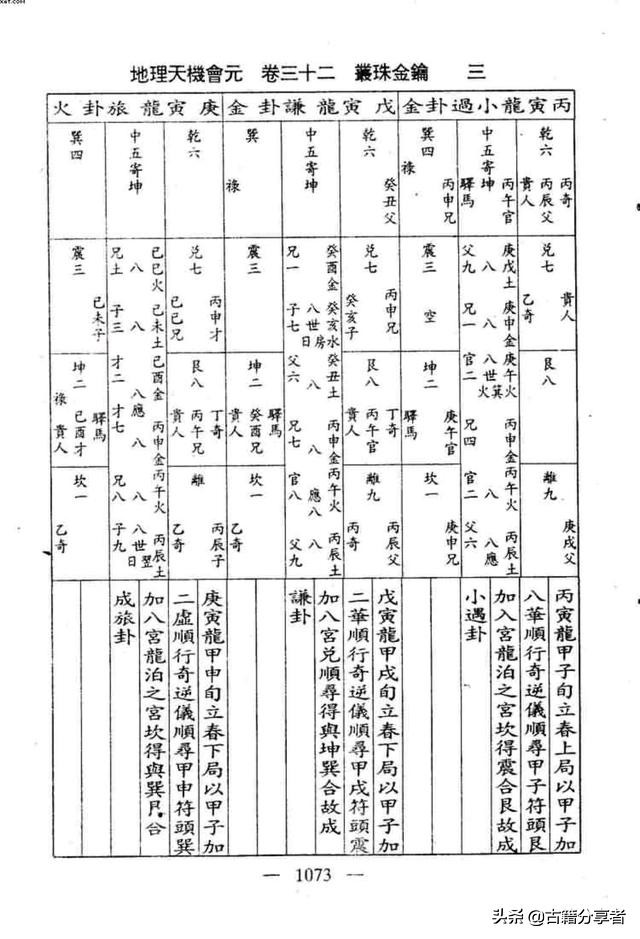 xet.com
地理天機會元　卷三十二　叢珠金鑰　三
丙寅龍小過卦金
乾六
丙奇
丙辰父
貴人
兌七
貴人
乙奇
艮八
離九
庚戌父
中五寄坤
丙午官
驛馬
庚戌土
庚申金
庚午火
丙申金
丙午火
丙辰土
八
八
八世箕火
八
八應
父九
兄一
官二
兄四
官二
父六
巽四
丙申兄
祿
震三
空
坤二
庚午官
驛馬
坎一
庚申兄
丙寅龍甲子旬立春上局以甲子加
八華順行奇逆儀順尋甲子符頭艮
加入宮龍泊之宮坎得震合艮故成
小遇卦
戊寅龍謙卦金
乾六
癸丑父
兌七
丙申兄
癸亥子
艮八
丁奇
丙午官
貴人
離九
丙辰父
丙奇
中五寄坤
癸酉金
癸亥水
癸丑土
丙申金
丙午火
丙辰土
八世房日
八
八
應八
八
兄一
子七
父六
兄七
官八
父九
巽
祿
震三
坤二
驛馬
癸酉兄
貴人
坎一
乙奇
戊寅龍甲戌旬立春下局以甲子加
二華順行奇逆儀順尋甲戌符頭震
加八宮兌順尋得與坤巽合故成
謙卦
庚寅龍旅卦火
乾六
兌七
丙申才
己巳兄
艮八
丁奇
丙午兄
貴人
離
丙辰子
乙奇
中五寄坤
己巳火
己未土
己酉金
丙申金
丙午火
丙辰土
八
八
八應
八
八
八世翌日
兄土
子三
才二
才七
兄八
子九
巽四
震三
己未子
坤二
驛馬
己酉才
祿
貴人
坎一
乙奇
庚寅龍甲申旬立春下局以甲子加
二虛順行奇逆儀順尋甲申符頭巽
加八宮龍泊之宮坎得與巽艮合
成旅卦
— 1073 —
头条 @古籍分享者